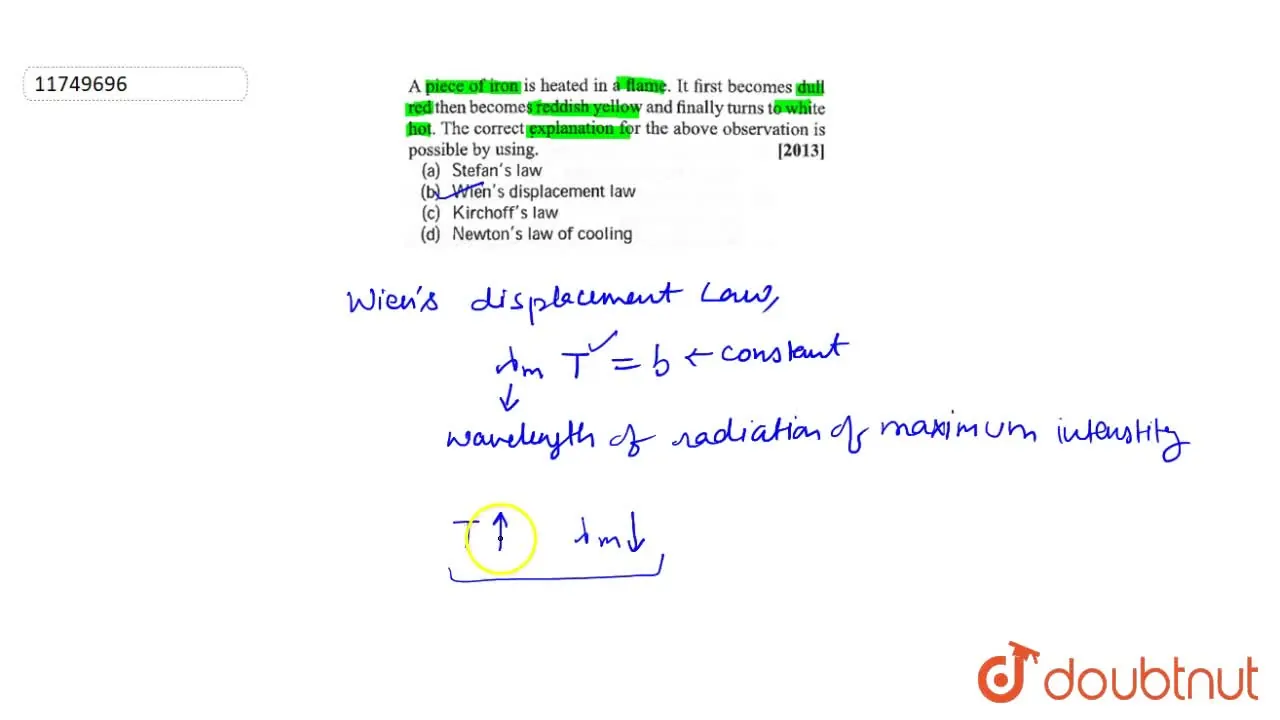 11749696
A piece of iron is heated in a flame. It first becomes dull
red then becomes reddish yellow and finally turns to white
hot. The correct explanation for the above observation is
possible by using. [2013]
(a) Stefan's law
(b) Wien's displacement law
(c) Kirchoff's law
(d) Newton's law of cooling
Wien's displacement Law,
λm T = b ← constant
↓
wavelength of radiation of maximum intenstity
T ↑ λm ↓
doubtnut